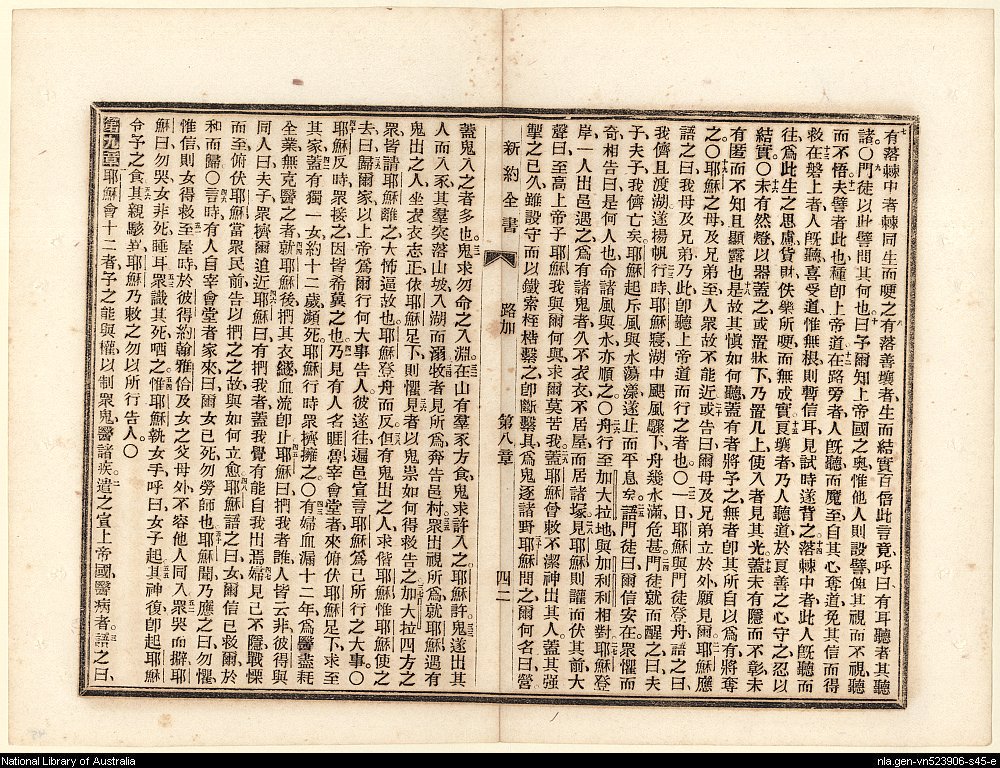 有落棘中者棘同生而哽之有落善壤者生而結實百倍此言竟呼曰有耳聽者其聽
諸〇門徒以此譬問其何也曰予爾知上帝國之奧惟他人則設譬俾其視而不視聽
而不悟夫譬者此也種卽上帝道在路旁者人旣聽而魔至自其心奪道免其信而得
救在磐上者人旣聽喜受道惟無根則暫信耳見試時遂背之落棘中者此人旣聽而
往爲此生之思慮貨財佚樂所哽而無成實良壤者乃人聽道於良善之心守之忍以
結實〇未有然燈以器蓋之或置牀下乃置几上使入者見其光蓋未有隱而不彰未
有匿而不知且顯露也是故其愼如何聽蓋有者將予之無者卽其所自以爲有將奪
之〇耶穌之母及兄弟至人眾故不能近或告曰爾母及兄弟立於外願見爾耶穌應
語之曰我母及兄弟乃此卽聽上帝道而行之者也〇一日耶穌與門徒登舟語之曰
我儕且渡湖遂揚帆行時耶穌寢湖中颶風驟下舟幾水滿危甚門徒就而醒之曰夫
子夫子我儕亡矣耶穌起斥風與水蕩漾遂止而平息矣語門徒曰爾信安在眾懼而
奇相告曰是何人也命諸風與水亦順之〇舟行至加大拉地與加利利相對耶穌登
岸一人出邑遇之爲有諸鬼者久不衣衣不居屋而居諸塚見耶穌則讙而伏其前大
聲曰至高上帝子耶穌我與爾何與求爾莫苦我蓋耶穌曾敕不潔神出其人蓋其強
掣之已久雖設守而以鐵索桎梏繫之卽斷繫具爲鬼逐諸野耶穌問之爾何名曰營
新約全書 路加 第八章 四二
蓋鬼入之者多也鬼求勿命之入淵在山有羣豕方食鬼求許入之耶穌許鬼遂出其
人而入豕其羣突落山坡入湖而溺牧者見所爲奔告邑村眾出視所爲就耶穌遇有
鬼出之人坐衣衣志正依耶穌足下則懼見者以鬼祟如何得救告之加大拉四方之
眾皆請耶穌離之大怖逼故也耶穌登舟而反但有鬼出之人求偕耶穌惟耶穌使之
去曰歸爾家以上帝爲爾行何大事告人彼遂往遍邑宣言耶穌爲己所行之大事〇
耶穌反時眾接之因皆希冀之也乃見有人名睚魯宰會堂者來俯伏耶穌足下求至
其家蓋有獨一女約十二歲瀕死耶穌行時眾擠擁之〇有婦血漏十二年爲醫盡耗
全業無克醫之者就耶穌後捫其衣繸血流卽止耶穌曰捫我者誰人皆云非彼得與
同人曰夫子眾擠爾迫近耶穌曰有捫我者蓋我覺有能自我出焉婦見己不隱戰慄
而至俯伏耶穌當眾民前告以捫之之故與如何立愈耶穌語之曰女爾信已救爾於
和而歸〇言時有人自宰會堂者家來曰爾女已死勿勞師也耶穌聞乃應之曰勿懼
惟信則女得救至屋時於彼得約翰雅各及女之父母外不容他人同入眾哭而擗耶
穌曰勿哭女非死睡耳眾識其死哂之惟耶穌執女手呼曰女子起其神復卽起耶穌
令予之食其親駭異耶穌乃敕之勿以所行告人〇
第九章耶穌會十二者予之能與權以制眾鬼醫諸疾遣之宣上帝國醫病者語之曰
National Library of Australia
nla.gen-vn523906-s45-e